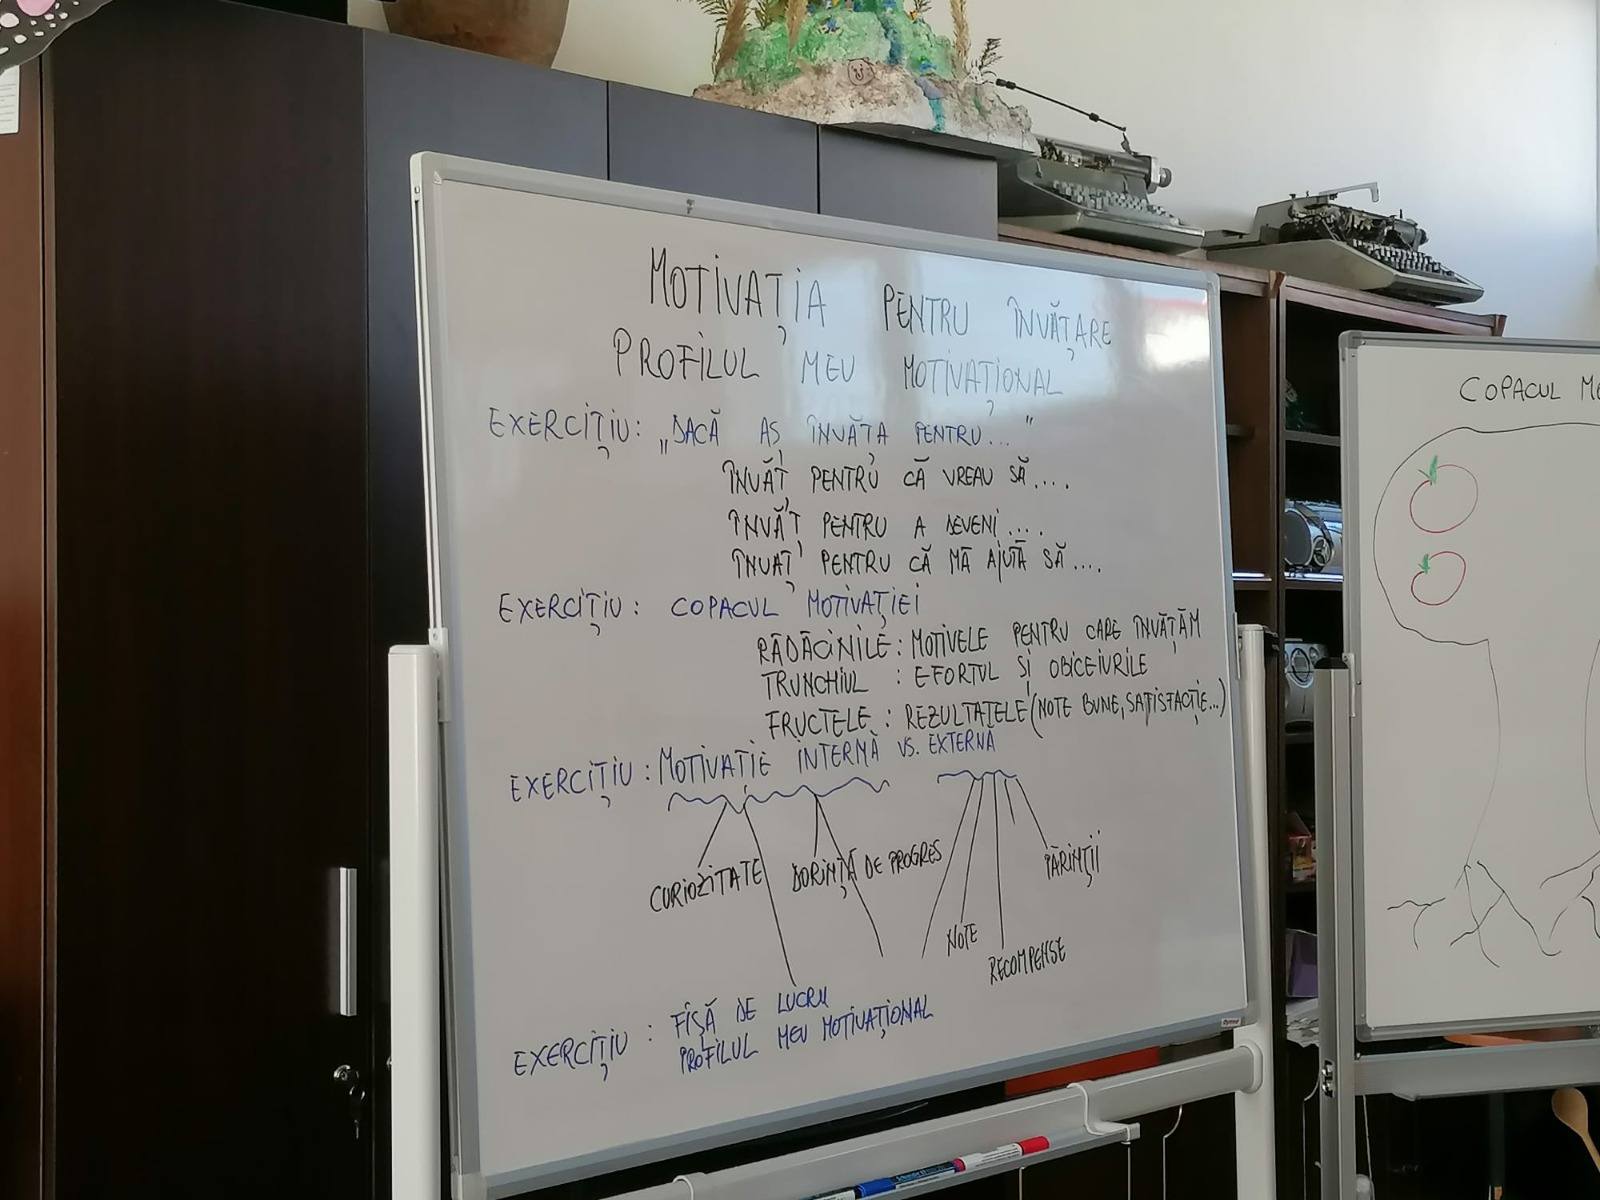 MOTIVAȚIA PENTRU ÎNVĂȚARE
PROFILUL MEU MOTIVAȚIONAL
EXERCIȚIU: „DACĂ AȘ ÎNVĂȚA PENTRU..."
ÎNVĂȚ PENTRU CĂ VREAU SĂ....
ÎNVĂȚ PENTRU A DEVENI....
ÎNVAȚ PENTRU CĂ MĂ AJUTĂ SĂ....
EXERCIȚIU: COPACUL MOTIVAȚIEI
RĂDĂCINILE: MOTIVELE PENTRU CARE ÎNVĂȚĂM
TRUNCHIUL : EFORTUL ȘI OBICEIURILE
FRUCTELE : REZULTATELE (NOTE BUNE, SATISFACȚIE...)
EXERCIȚIU: MOTIVAȚIE INTERNĂ VS. EXTERNĂ
CURIOZITATE DORINȚĂ DE PROGRES PĂRINȚII
NOTE
RECOMPENSE
EXERCIȚIU : FIȘĂ DE LUCRU
PROFILUL MEU MOTIVAȚIONAL
COPACUL